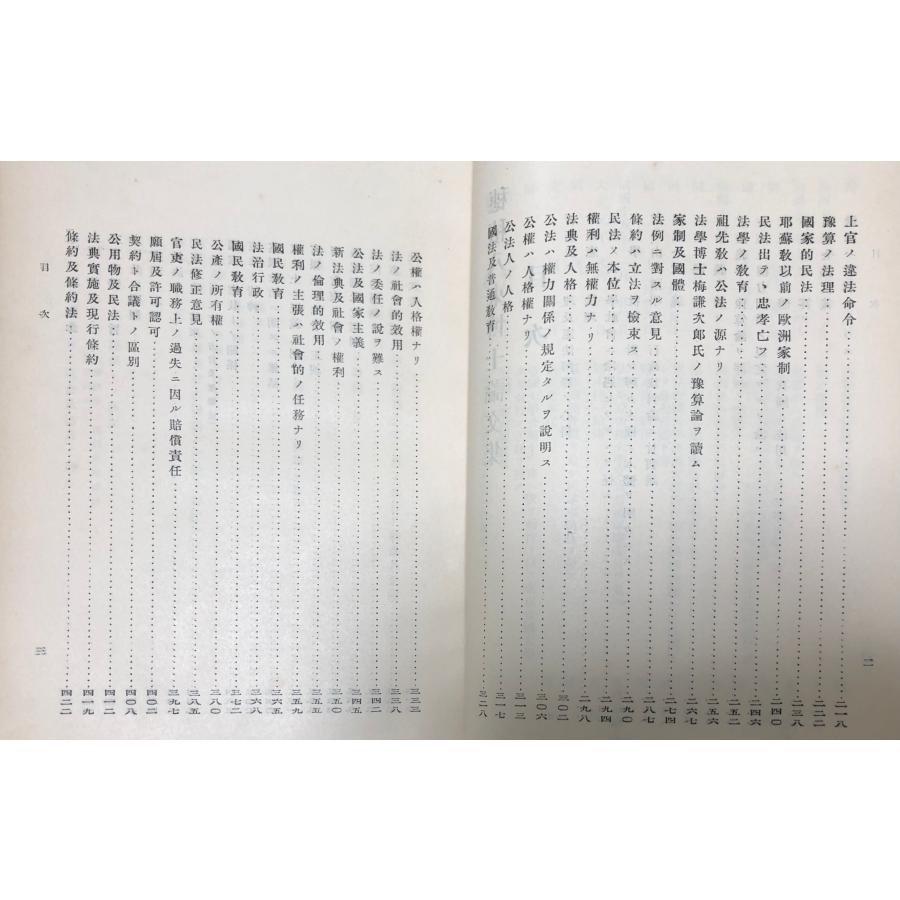 二
上官ノ違法命令……二一八
豫算ノ法理……二二二
國家的民法……二三八
耶蘇敎以前ノ歐洲家制……二四〇
民法出テヽ忠孝亡フ……二四六
法學ノ敎育……二五二
祖先敎ハ公法ノ源ナリ……二五六
法學博士梅謙次郎氏ノ豫算論ヲ讀ム……二六七
家制及國體……二七四
法例ニ對スル意見……二八七
條約ハ立法ヲ檢束ス……二九〇
民法ノ本位……二九四
權利ハ無權力ナリ……二九八
法典及人格……三〇二
公法ハ權力關係ノ規定タルヲ說明ス……三〇六
公權ハ人格權ナリ……三一三
公法人ノ人格……三一七
國法及普通敎育……三二八
公權ハ人格權ナリ……三三三
法ノ社會的效用……三三八
法ノ委任ノ說ヲ難ス……三四二
公法及國家主義……三四五
新法典及社會ノ權利……三五〇
法ノ倫理的效用……三五五
權利ノ主張ハ社會的ノ任務ナリ……三五九
國民敎育……三六六
法治行政……三六八
國民敎育……三七二
公產ノ所有權……三八〇
民法修正意見……三八五
官吏ノ職務上ノ過失ニ因ル賠償責任……三九七
願屆及許可認可……四〇二
契約ト合議トノ區別……四〇八
公用物及民法……四一二
法典實施及現行條約……四一九
條約及條約法……四二二
目次 三